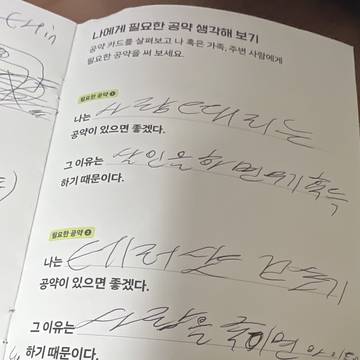 나에게 필요한 공약 생각해 보기
공약 카드를 살펴보고 나 혹은 가족, 주변 사람에게
필요한 공약을 써 보세요.
필요한 공약 ❶
나는 사람 때리는
공약이 있으면 좋겠다.
그 이유는 살인을 하면
하기 때문이다.
필요한 공약 ❷
나는 테러
공약이 있으면 좋겠다.
그 이유는 사람을 죽이면
하기 때문이다.